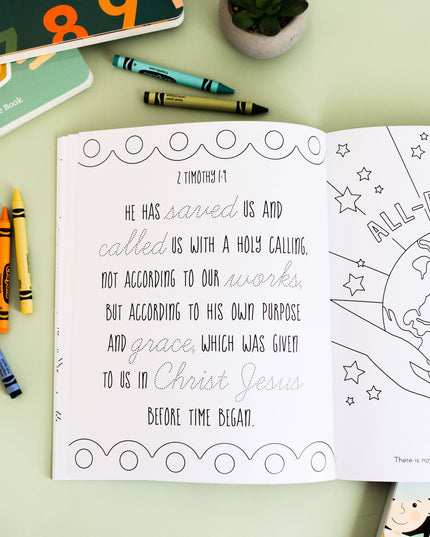 78
9
e Book
Crayola
Crayola
2 TIMOTHY 1:9
HE HAS saved US AND
called US WITH A HOLY CALLING,
NOT ACCORDING TO OUR works,
BUT ACCORDING TO HIS OWN PURPOSE
AND grace, WHICH WAS GIVEN
TO US IN Christ Jesus
BEFORE TIME BEGAN.
ALL-
There is no
Crayola
Crayola